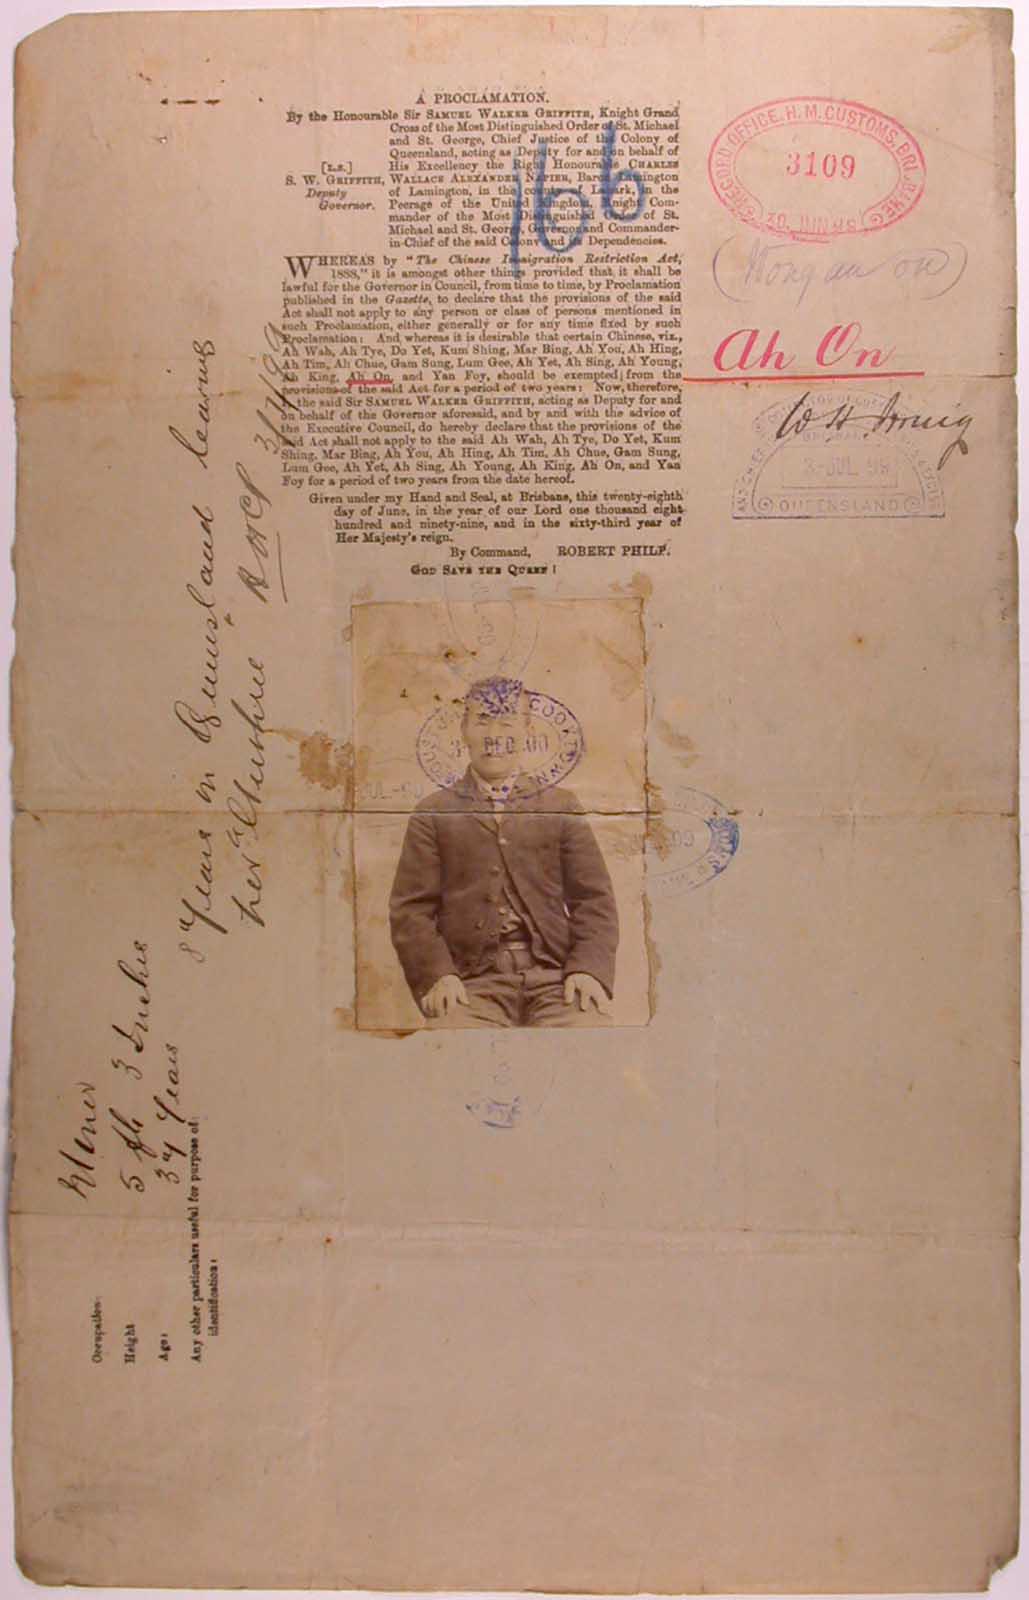 A PROCLAMATION.
By the Honourable Sir SAMUEL WALKER GRIFFITH, Knight Grand
Cross of the Most Distinguished Order of St. Michael
and St. George, Chief Justice of the Colony of
Queensland, acting as Deputy for and on behalf of
[L.S.] His Excellency the Right Honourable CHARLES
S. W. GRIFFITH, WALLACE ALEXANDER NAPIER, Baron Lamington
Deputy of Lamington, in the county of Lanark, in the
Governor. Peerage of the United Kingdom, Knight Com-
mander of the Most Distinguished Order of St.
Michael and St. George, Governor and Commander-
in-Chief of the said Colony and its Dependencies.
WHEREAS by "The Chinese Immigration Restriction Act,
1888," it is amongst other things provided that it shall be
lawful for the Governor in Council, from time to time, by Proclamation
published in the Gazette, to declare that the provisions of the said
Act shall not apply to any person or class of persons mentioned in
such Proclamation, either generally or for any time fixed by such
Proclamation: And whereas it is desirable that certain Chinese, viz.,
Ah Wah, Ah Tye, Do Yet, Kum Shing, Mar Bing, Ah You, Ah Hing,
Ah Tim, Ah Chue, Gam Sung, Lum Gee, Ah Yet, Ah Sing, Ah Young,
Ah King, Ah On, and Yan Foy, should be exempted from the
provisions of the said Act for a period of two years: Now, therefore,
I, the said Sir SAMUEL WALKER GRIFFITH, acting as Deputy for and
on behalf of the Governor aforesaid, and by and with the advice of
the Executive Council, do hereby declare that the provisions of the
said Act shall not apply to the said Ah Wah, Ah Tye, Do Yet, Kum
Shing, Mar Bing, Ah You, Ah Hing, Ah Tim, Ah Chue, Gam Sung,
Lum Gee, Ah Yet, Ah Sing, Ah Young, Ah King, Ah On, and Yan
Foy for a period of two years from the date hereof.
Given under my Hand and Seal, at Brisbane, this twenty-eighth
day of June, in the year of our Lord one thousand eight
hundred and ninety-nine, and in the sixty-third year of
Her Majesty's reign.
By Command, ROBERT PHILP.
GOD SAVE THE QUEEN!
166
RECORD OFFICE. H. M. CUSTOMS, BRISBANE
3109
30. JUN. 99
(Wong an on)
Ah On
W H Irving
3-JUL 99
QUEENSLAND
COOKTOWN
DEC. 00
Occupation: Miner
Height 5 ft 3 Inches
Age: 37 Years
Any other particulars useful for purpose of
identification:
8 Years in Queensland leaving
3/7/99